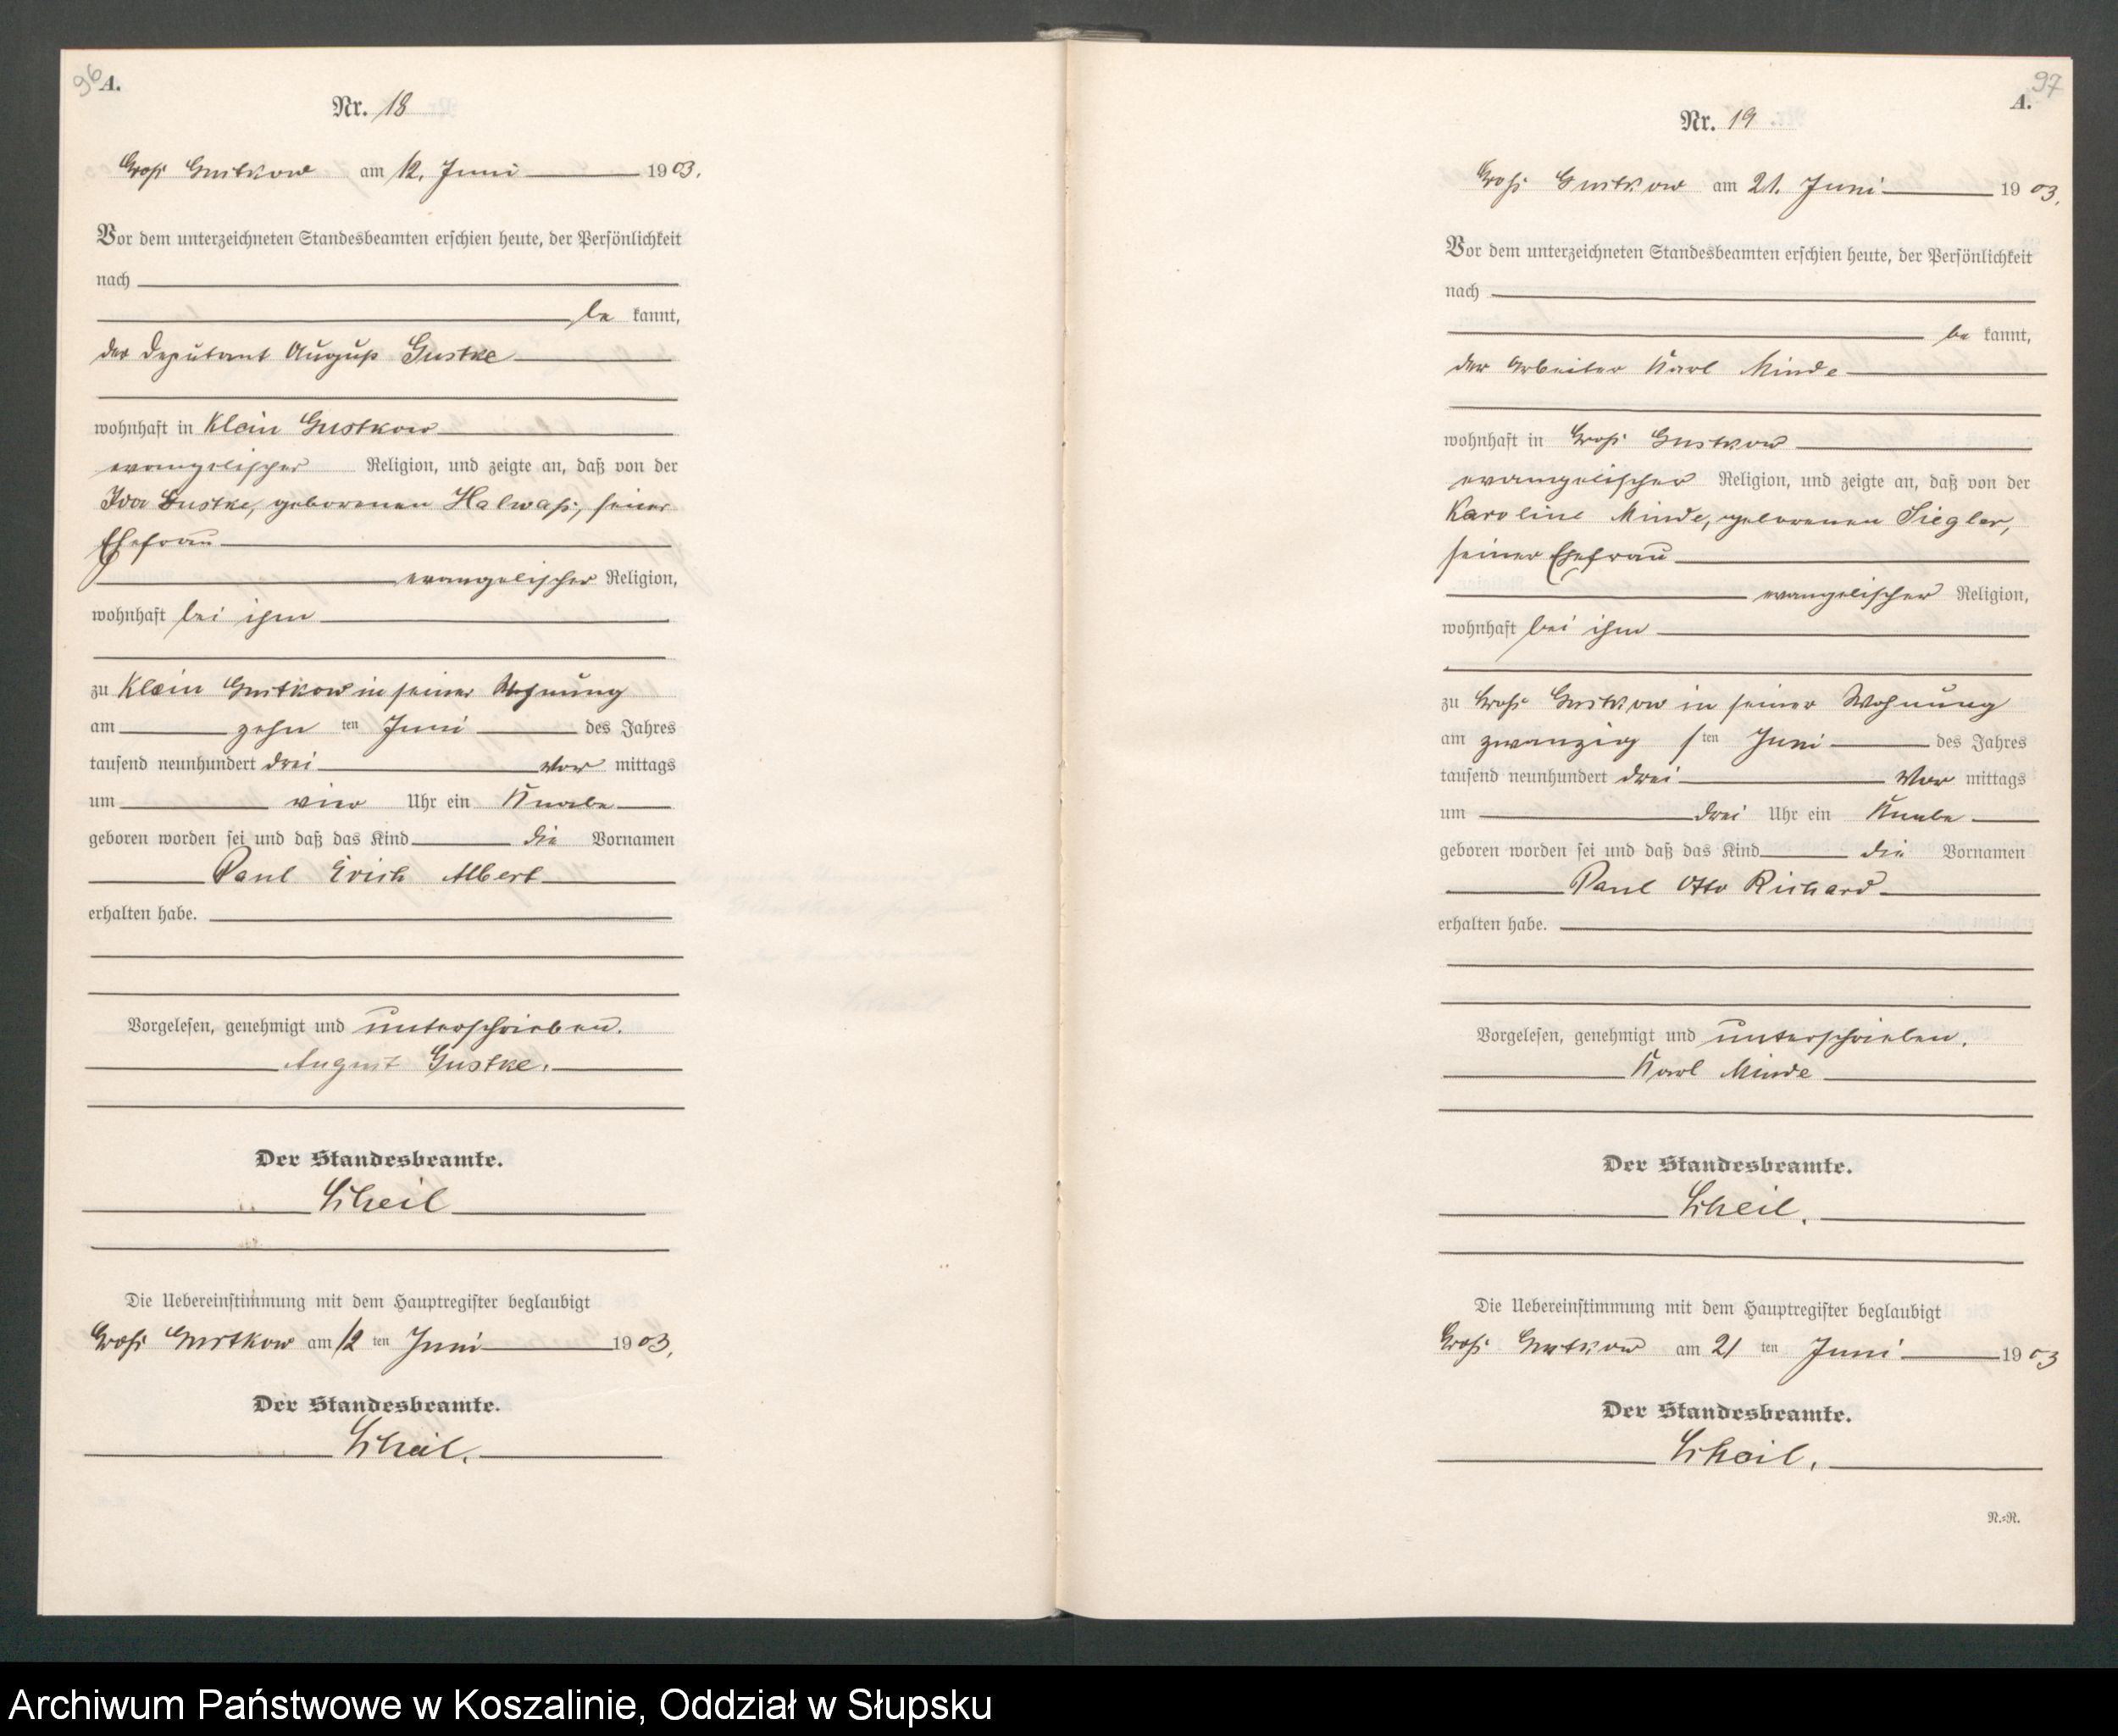 96 A.
Nr. 18
Groß Gustkow am 12. Juni 1903.
Vor dem unterzeichneten Standesbeamten erschien heute, der Persönlichkeit
nach
be kannt,
der Deputant August Gustke
wohnhaft in Klein Gustkow
evangelischer Religion, und zeigte an, daß von der
Ida Gustke, geborenen Halwaß, seiner
Ehefrau
evangelischer Religion,
wohnhaft bei ihm
zu Klein Gustkow in seiner Wohnung
am zehn ten Juni des Jahres
tausend neunhundert drei Vor mittags
um vier Uhr ein Knabe
geboren worden sei und daß das Kind die Vornamen
Paul Erich Albert
erhalten habe.
Vorgelesen, genehmigt und unterschrieben.
August Gustke.
Der Standesbeamte.
Scheil
Die Uebereinstimmung mit dem Hauptregister beglaubigt
Groß Gustkow am 12 ten Juni 1903.
Der Standesbeamte.
Scheil.
97
A.
Nr. 19
Groß Gustkow am 21. Juni 1903.
Vor dem unterzeichneten Standesbeamten erschien heute, der Persönlichkeit
nach
be kannt,
der Arbeiter Karl Minde
wohnhaft in Groß Gustkow
evangelischer Religion, und zeigte an, daß von der
Karoline Minde, geborenen Siegler,
seiner Ehefrau
evangelischer Religion,
wohnhaft bei ihm
zu Groß Gustkow in seiner Wohnung
am zwanzig sten Juni des Jahres
tausend neunhundert drei Vor mittags
um drei Uhr ein Knabe
geboren worden sei und daß das Kind die Vornamen
Paul Otto Richard
erhalten habe.
Vorgelesen, genehmigt und unterschrieben.
Karl Minde
Der Standesbeamte.
Scheil.
Die Uebereinstimmung mit dem Hauptregister beglaubigt
Groß Gustkow am 21 ten Juni 1903
Der Standesbeamte.
Scheil.
N.=N.
Archiwum Państwowe w Koszalinie, Oddział w Słupsku